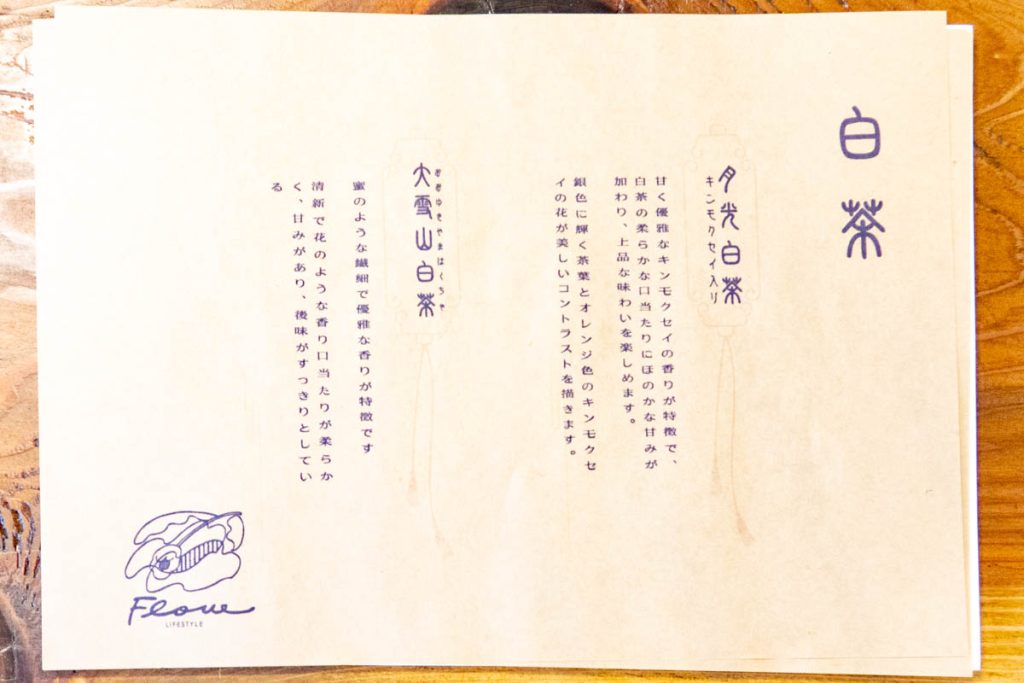 白茶
月光白茶
キンモクセイ入り
甘く優雅なキンモクセイの香りが特徴で、
白茶の柔らかな口当たりにほのかな甘みが
加わり、上品な味わいを楽しめます。
銀色に輝く茶葉とオレンジ色のキンモクセ
イの花が美しいコントラストを描きます。
おおゆきやまはくちゃ
大雪山白茶
蜜のような繊細で優雅な香りが特徴です
清新で花のような香り口当たりが柔らか
く、甘みがあり、後味がすっきりとしてい
る
Flow
LIFESTYLE